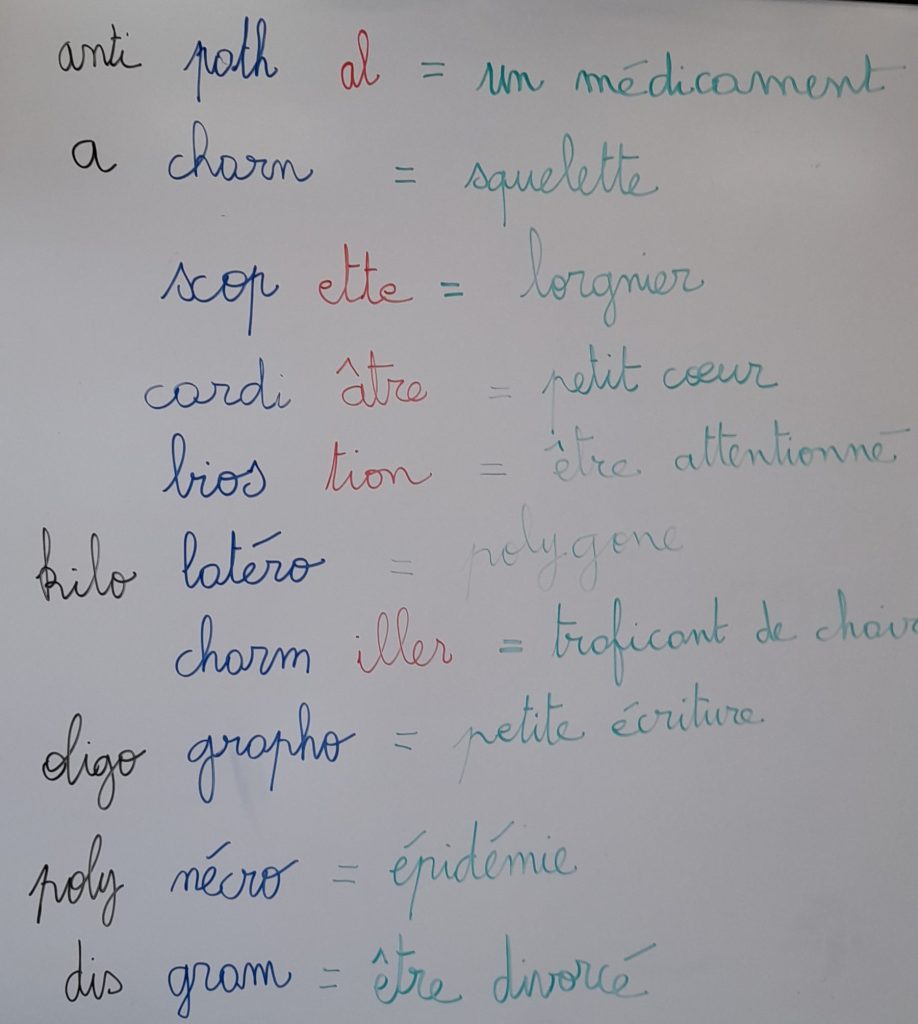 anti path al = un médicament
a charn = squelette
scop ette = lorgnier
cardi âtre = petit cœur
bios tion = être attentionné
kilo latéro = polygone
charm iller = traficant de chair
oligo grapho = petite écriture
poly nécro = épidémie
dis gram = être divorcé